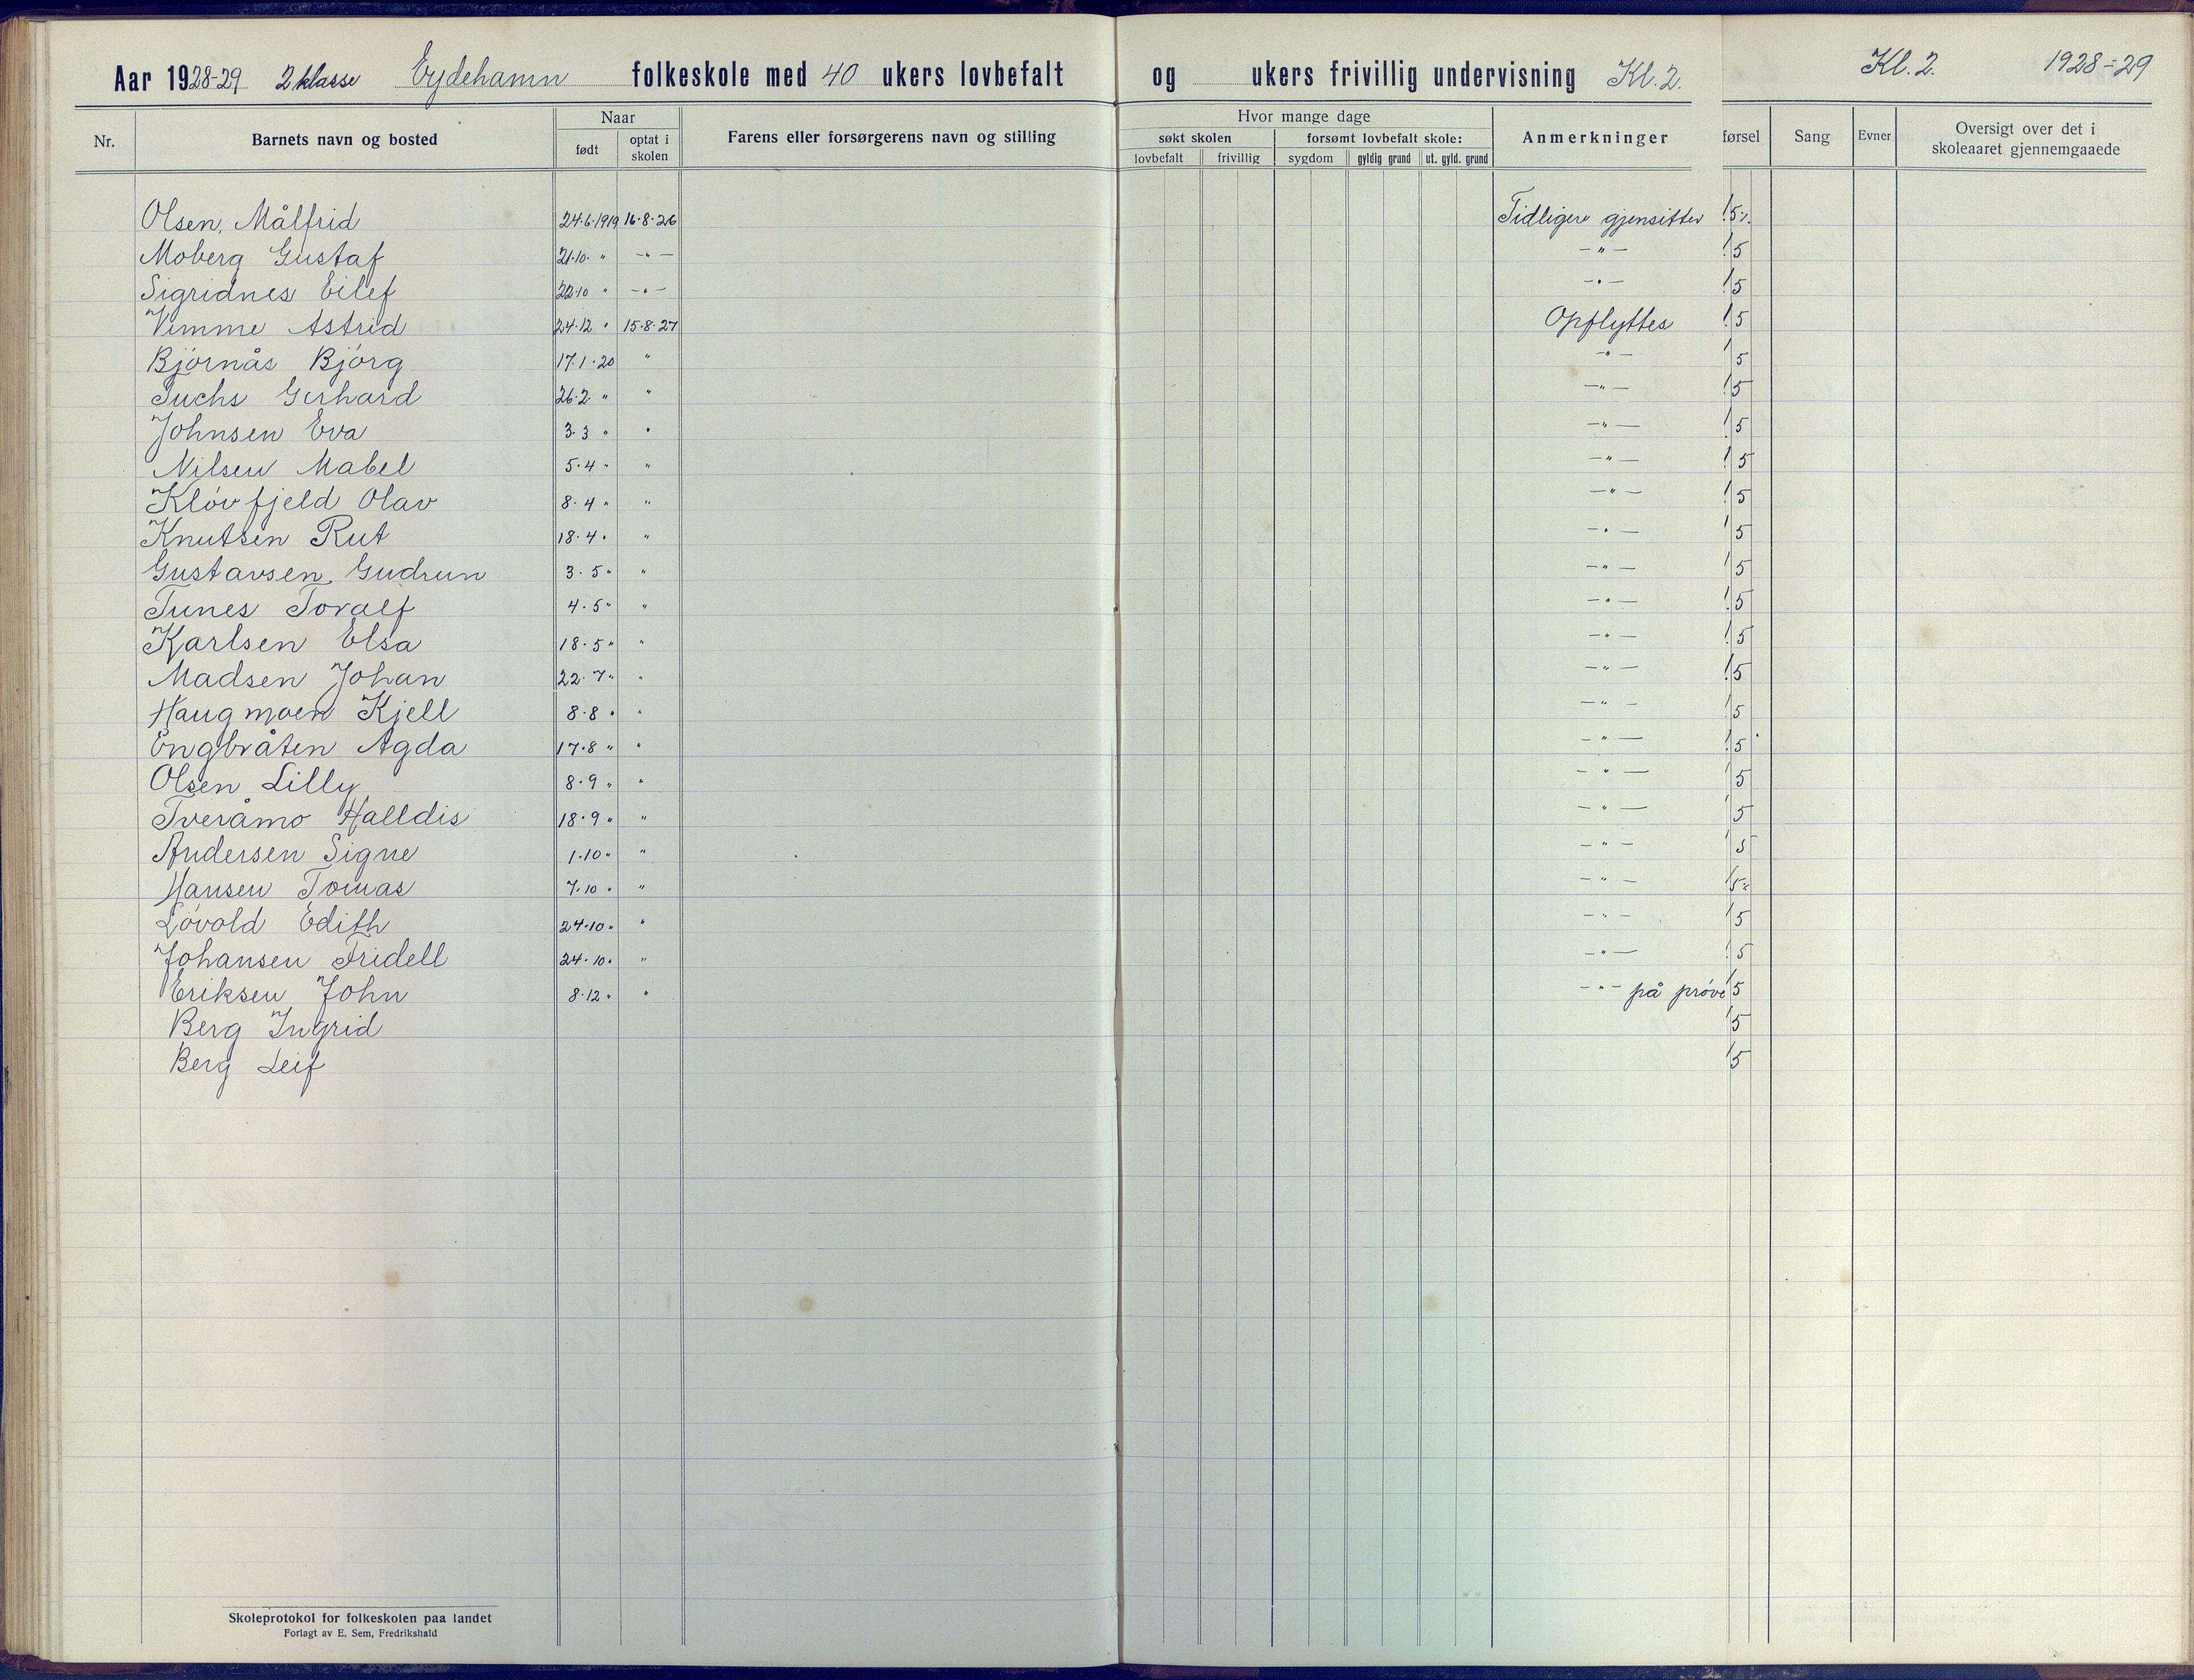 Aar 1928-29 2 klasse Eydehamn folkeskole med 40 ukers lovbefalt og ukers frivillig undervisning Kl. 2. Kl. 2. 1928-29
Nr. Barnets navn og bosted Naar født optat i skolen Farens eller forsørgerens navn og stilling Hvor mange dage søkt skolen lovbefalt frivillig forsømt lovbefalt skole: sygdom gyldig grund ut. gyld. grund Anmerkninger førsel Sang Evner Oversigt over det i skoleaaret gjennemgaaede
Olsen, Målfrid 24.6.1919 16.8.26 Tidligere gjensitter 1.5
Moberg Gustaf 21.10. " -"- -"- 1.5
Sigridnes Eilef 22.10 " -"- -"- 1.5
Vimme Astrid 24.12 " 15.8.27 Opflyttes 1.5
Bjørnås Bjørg 17.1.20 " -"- 1.5
Fuchs Gerhard 26.2. " " -"- 1.5
Johnsen Eva 3.3 " " -"- 1.5
Nilsen Mabel 5.4 " " -"- 1.5
Kløvfjeld Olav 8.4 " " -"- 1.5
Knutsen Rut 18.4. " -"- 1.5
Gustavsen, Gudrun 3.5 " " -"- 1.5
Tunes Toralf 4.5 " " -"- 1.5
Karlsen Elsa 18.5 " " -"- 1.5
Madsen Johan 22.7 " " -"- 1.5
Haugmoen Kjell 8.8 " " -"- 1.5
Engbråten Agda 17.8 " " -"- 1.5
Olsen Lilly 8.9 " " -"- 1.5
Tveråmo Halldis 18.9 " " -"- 1.5
Andersen Signe 1.10 " " -"- 1.5
Hansen Tomas 7.10 " " -"- 1.5
Løvold Edith 24.10 " " -"- 1.5
Johansen Fridell 24.10. " -"- 1.5
Eriksen John 8.12 " " -"- på prøve 1.5
Berg Ingrid 1.5
Berg Leif 1.5
Skoleprotokol for folkeskolen paa landet
Forlagt av E. Sem, Fredrikshald